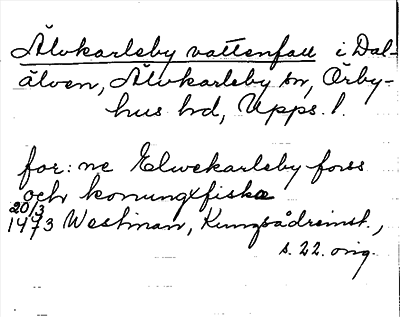 Älvkarleby vattenfall i Dal-
älven, Älvkarleby sn, Örby-
hus hd, Upps. l.
for: ne Elwekarleby forss
och konungxfiske
20/3
1473 Westman, Kungsådreinst.,
s. 22. orig.